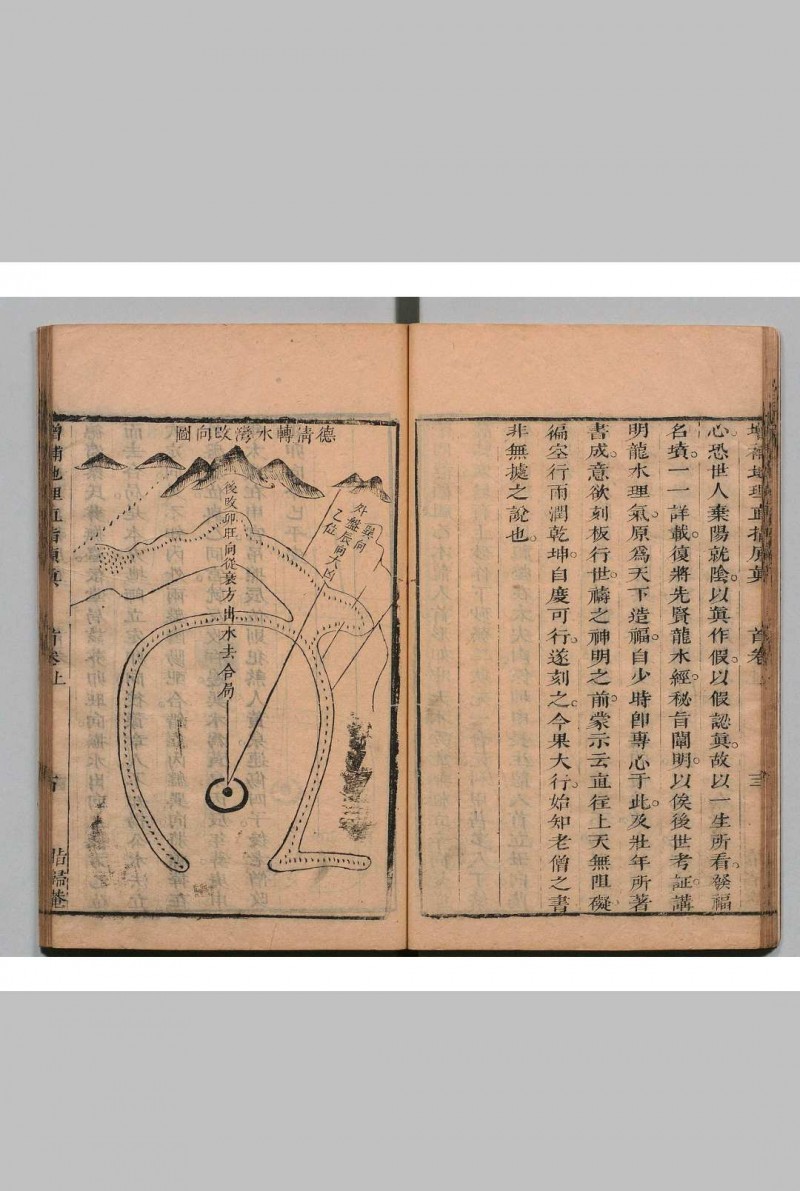 增補地理直指原真
首卷上
三
心恐世人棄陽就陰以眞作假以假認眞故以一生所看發福
名墳一一詳載復將先賢龍水經秘旨闡明以俟後世考証講
明龍水理氣原爲天下造福自少時卽專心于此及壯年所著
書成意欲刻板行世禱之神明之前蒙示云直徃上天無阻礙
徧空行雨潤乾坤自度可行遂刻之今果大行始知老僧之書
非無據之說也
德清轉水灣改向圖
巽向
外盤辰向大凶
乙位
後改卯旺向從衰方出水去合局
增補地理直指原真
首卷上